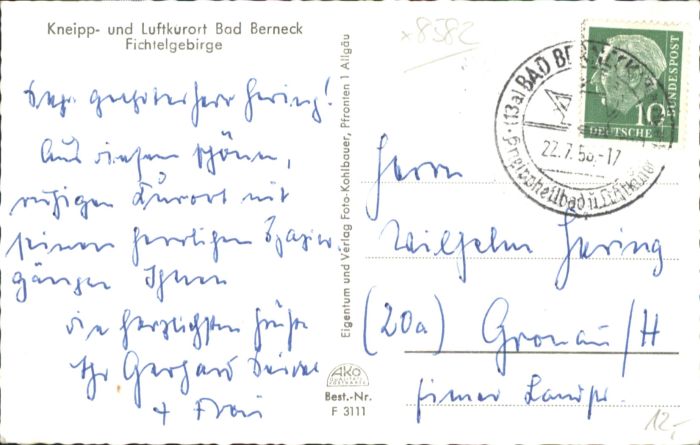 Kneipp- und Luftkurort Bad Berneck
Fichtelgebirge
Sehr geehrter Herr Hering!
Aus diesem schönen,
ruhigen Kurort mit
seinen herrlichen Spazier-
gängen Ihnen
die herzlichsten Grüße
Ihr Gerhard
+ Frau
Eigentum und Verlag Foto-Kohlbauer, Pfronten 1 Allgäu
Ako
Best.-Nr.
F 3111
x8582
(13a) BAD BERNECK
22.7.56.-17
Kneippheilbad u. Luftkurort
10
DEUTSCHE
BUNDESPOST
Herrn
Wilhelm Hering
(20a) Gronau/H
12,-